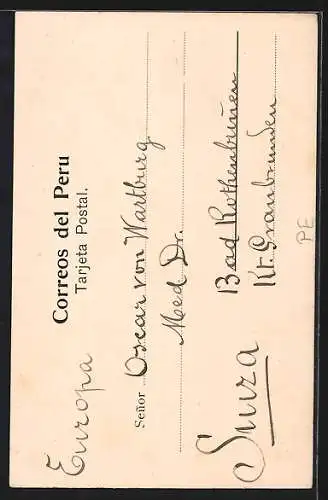 Correos del Peru
Tarjeta Postal.
Europa
Señor Oscar von Wartburg
Med Dr.
Bad Rothenbrunen
Kt. Graubunden
Suiza
PE